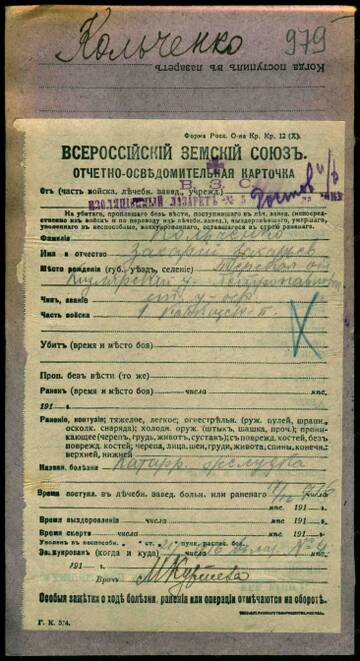 Кольченко 979
Когда поступил въ лазарет
Форма Росс. О-ва Кр. Кр. 12 (X).
ВСЕРОССІЙСКІЙ ЗЕМСКІЙ СОЮЗЪ.
ОТЧЕТНО-ОСВѢДОМИТЕЛЬНАЯ КАРТОЧКА
В. З. С.
Отъ (часть войска, лѣчебн. завед., учрежд.)
ИЗОЛЯЦІОННЫЙ ЛАЗАРЕТЪ № 5 Ростов н/Д
На убитаго, пропавшаго безъ вѣсти, поступившаго въ лѣч. завед. (непосред-
ственно изъ войскъ и по переводу изъ лѣчебн. завед.), выздоровѣвшаго, умершаго,
уволеннаго въ неспособные, эвакуированнаго, оставшагося въ строю раненаго.
Фамилія Кольченко
Имя и отчество Захарій
Мѣсто рожденія (губ. уѣздъ, селеніе) Терской об
Кизлярскій у.
Чинъ, званіе ст. у-оф
Часть войска
Убитъ (время и мѣсто боя)
Проп. безъ вѣсти (то же)
Раненъ (время и мѣсто боя) числа мѣс.
191 г.
Раненіе, контузія: тяжелое, легкое; огнестрѣльн. (руж. пулей, шрапн.,
осколк. снаряда); холодн. оруж. (штыкъ, шашка, проч.); прони-
кающее (черепъ, грудь, животъ, суставъ); съ поврежд. костей, безъ
поврежд. костей; черепа, лица, шеи, груди, живота, спины, конечн.:
верхней, нижней
Назван. болѣзни Катарр желудка
Время поступл. въ лѣчебн. завед. больн. или раненаго числа
мѣс. 191 г.
Время выздоровленія числа мѣс. 191 г.
Время смерти числа мѣс. 191 г.
Уволенъ въ неспособн.
Эвакуированъ (когда и куда)
191 г.
Врачъ
Особыя замѣтки о ходѣ болѣзни, раненія или операціи отмѣчаются на оборотѣ.
Г. К. 5/4.